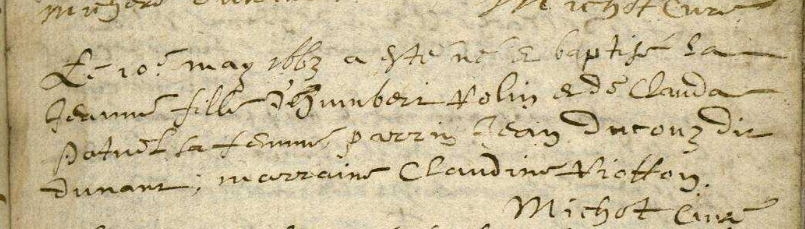 Michot Curé
Le 10e may 1663 a esté né et baptisé la
Jeanne fille d'humbert Rolin et de Clauda
patuel sa femme parrin Jean ducouz dit
dunant; marraine Claudine Riotton.
Michot Curé